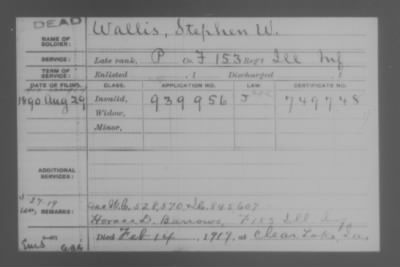 DEAD
NAME OF SOLDIER: Wallis, Stephen W.
SERVICE: Late rank, P Co. F 153 Reg't Ill Inf
TERM OF SERVICE: Enlisted , 1 Discharged , 1
DATE OF FILING. CLASS. APPLICATION NO. LAW. CERTIFICATE NO.
1890 Aug 29 Invalid, 939956 J 749748
Widow,
Minor,
ADDITIONAL SERVICES:
REMARKS: See W.C. 528,570 & C. 845607
Horace D. Barrows, F 153 Ill Inf
Died Feb 14, 1917, at Clear Lake, Ia.